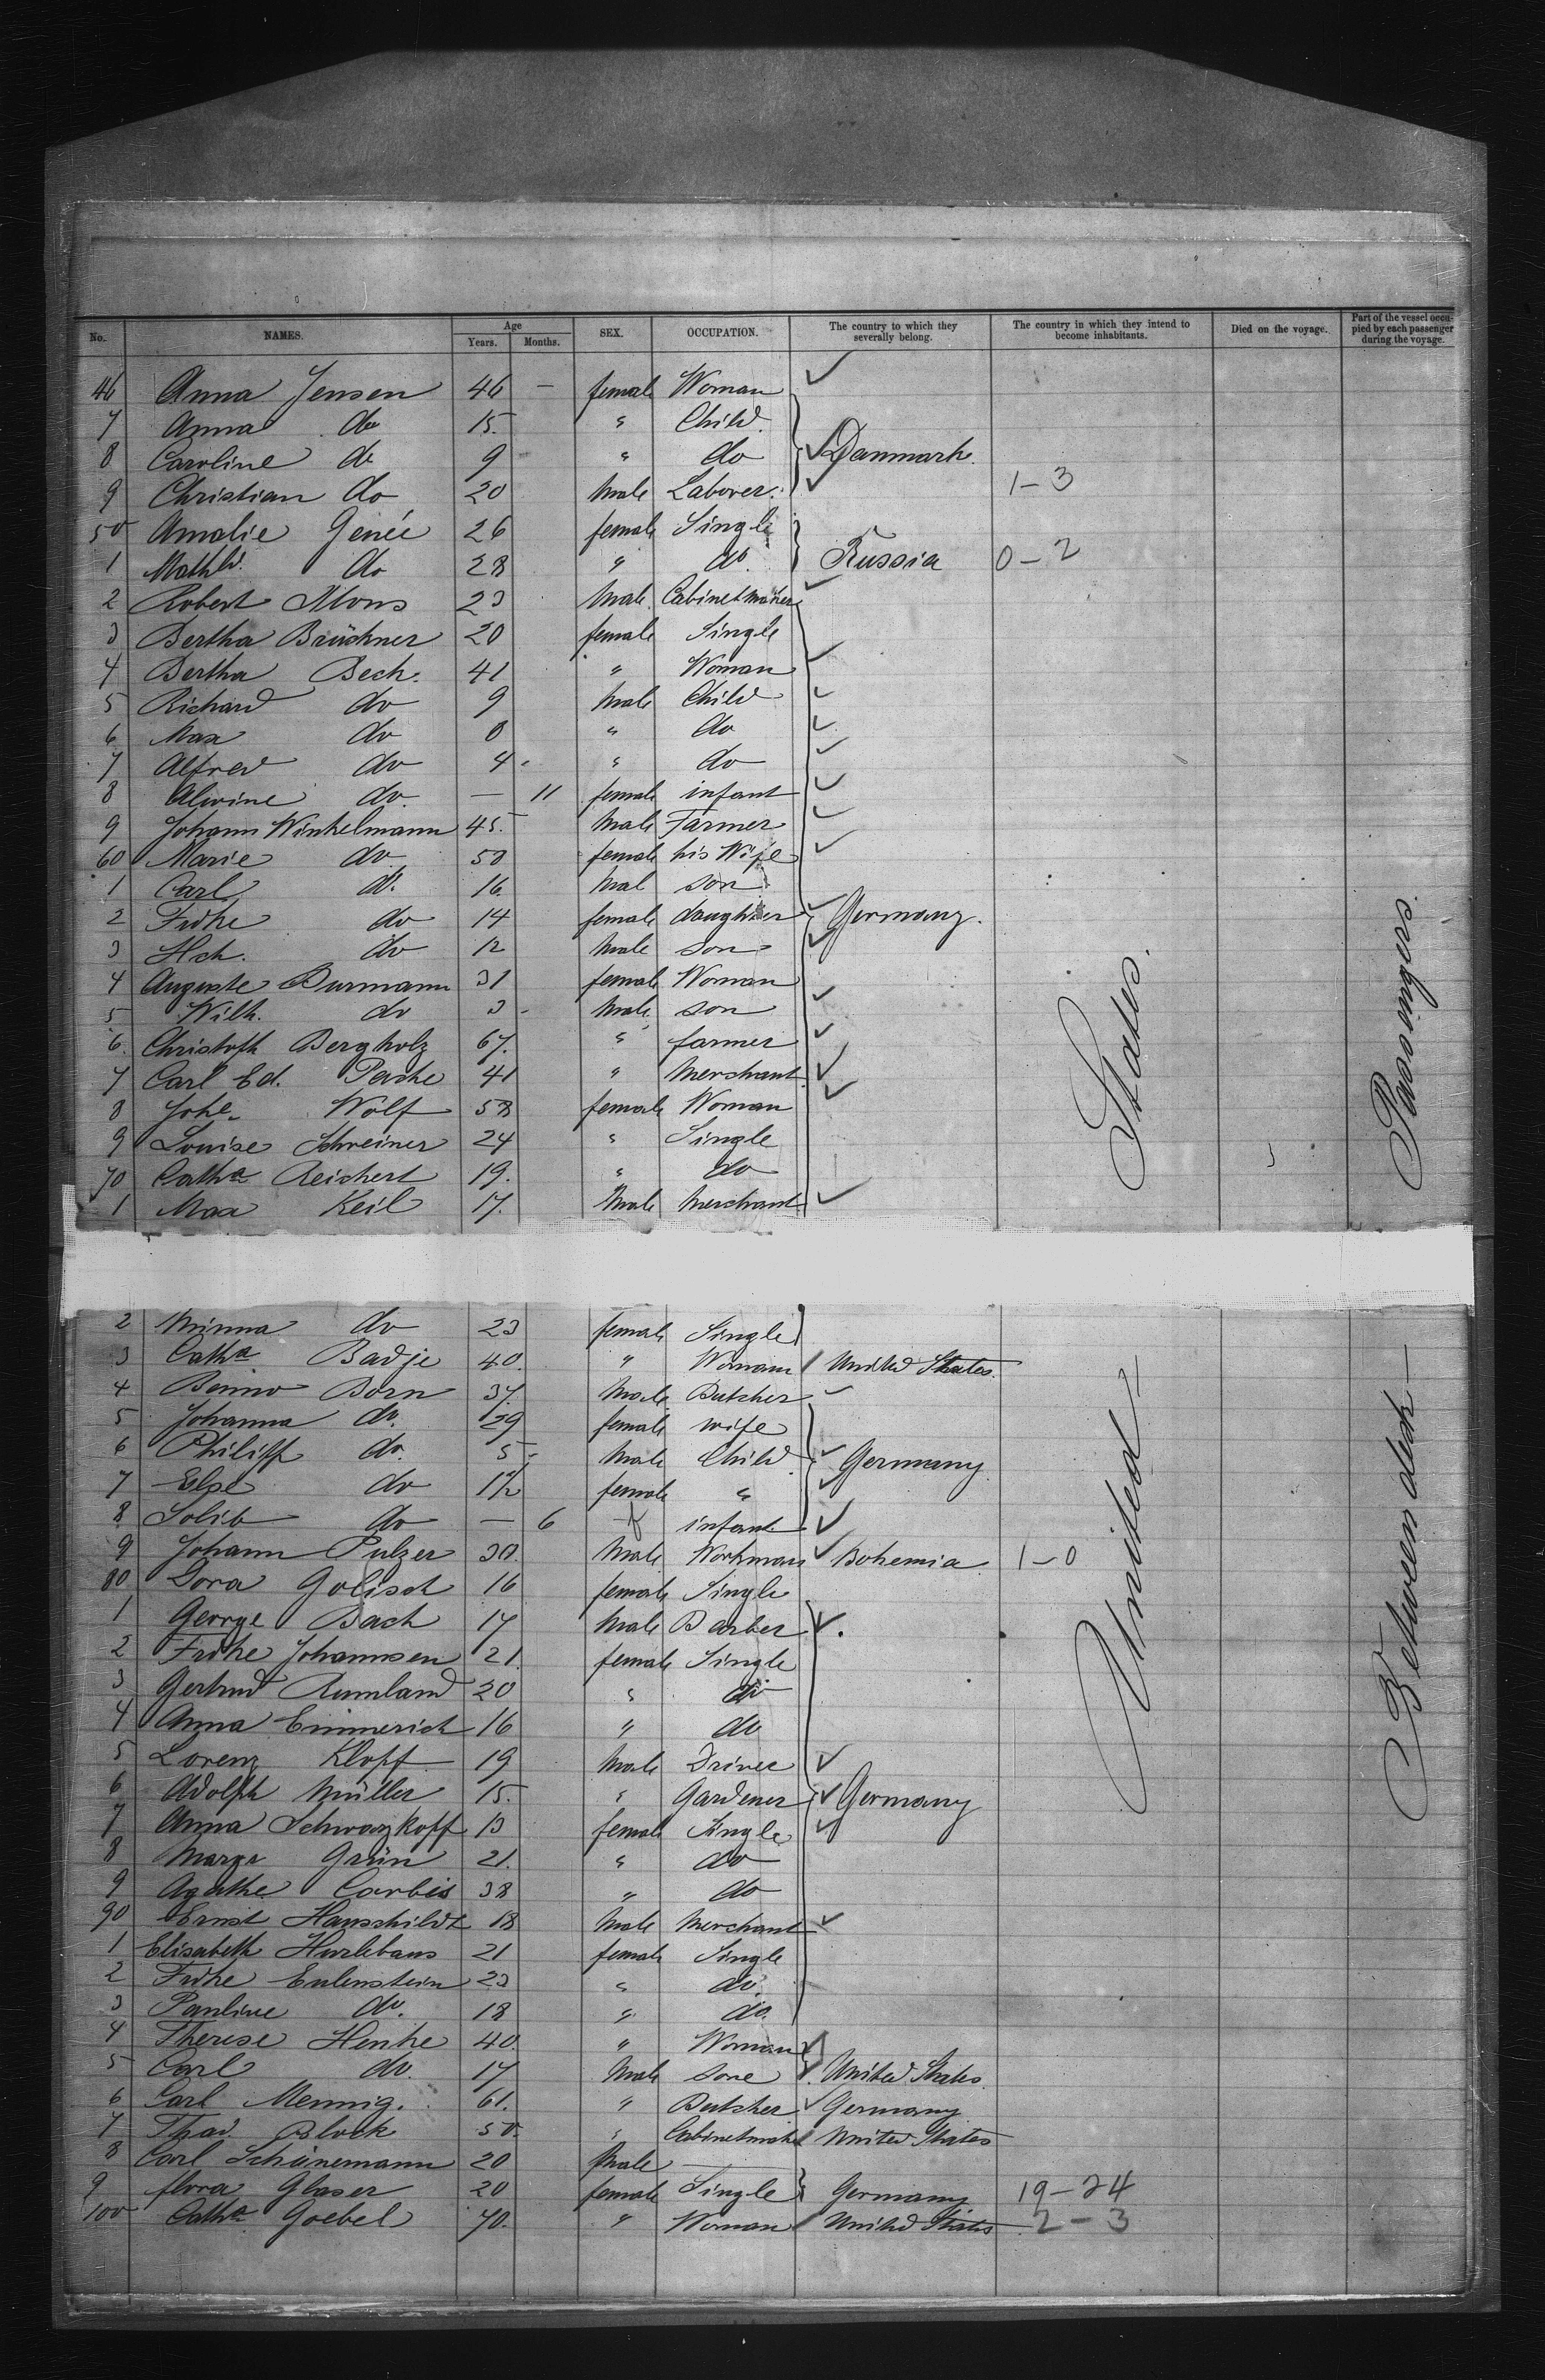 No. NAMES. Age Years. Months. SEX. OCCUPATION. The country to which they severally belong. The country in which they intend to become inhabitants. Died on the voyage. Part of the vessel occupied by each passenger during the voyage.
46 Anna Jensen 46 — female Woman
7 Anna do 15. " Child.
8 Caroline do 9 " do Danmark.
9 Christian do 20 Male Laborer. 1-3
50 Amalie Genée 26 female Single
1 Mathld. do 28 " do. Russia 0-2
2 Robert Mons 23 Male Cabinetmaker
3 Bertha Brückner 20 female Single
4 Bertha Beck. 41 " Woman
5 Richard do 9 Male Child
6 Max do 8 " do
7 Alfred do 4 " do
8 Alwine do. — 11 female infant
9 Johann Winkelmann 45. Male Farmer
60 Marie do 50 female his Wife
1 Carl do. 16 Mal son
2 Frdke do 14 female daughter Germany.
3 Hch. do 12 Male son
4 Auguste Burmann 31 female Woman
5 Wilh. do 3 Male son
6. Christoph Bergholz 67. " farmer
7 Carl Ed. Pache 41 " Merchant
8 Johe. Wolf 58 female Woman
9 Louise Schreiner 24 " Single
70 Catha Reichert 19. " do
1 Max Keil 17. Male Merchant
States. Passengers.
2 Minna do 23 female Single
3 Catha Badje 40. " Woman United States.
4 Benno Born 37. Male Butcher
5 Johanna do. 29 female wife
6 Philipp do. 5 Male Child Germany
7 Else do 1½ female "
8 do — 6 infant
9 Johann Pulzer 30. Male Workman Bohemia 1-0
80 Dora Golisch 16 female Single
1 George Bach 17 Male Barber
2 Frdke Johannsen 21. female Single
3 Gertrud Rumland 20 " do
4 Anna Emmerich 16 " do
5 Lorenz Klopf 19 Male Driver
6 Adolph Müller 15. " Gardener Germany
7 Anna Schwarzkopf 13 female Single
8 Marga Grün 21. " do
9 Agathe Corbis 38 " do
90 Ernst Hauschildt 18 Male Merchant
1 Elisabeth Hurlebaus 21 female Single
2 Frdke Eulenstein 23 " do.
3 Pauline do. 18 " do.
4 Therese Henke 40. " Woman
5 Carl do. 17 Male sone United States
6 Carl Mennig. 61. " Butcher Germany
7 Thad. Block 50. " Cabinetmak United States
8 Carl Schünemann 20 Male —
9 flora Glaser 20 female Single Germany 19-24
100 Catha Goebel 70. " Woman United States 2-3
United Between deck